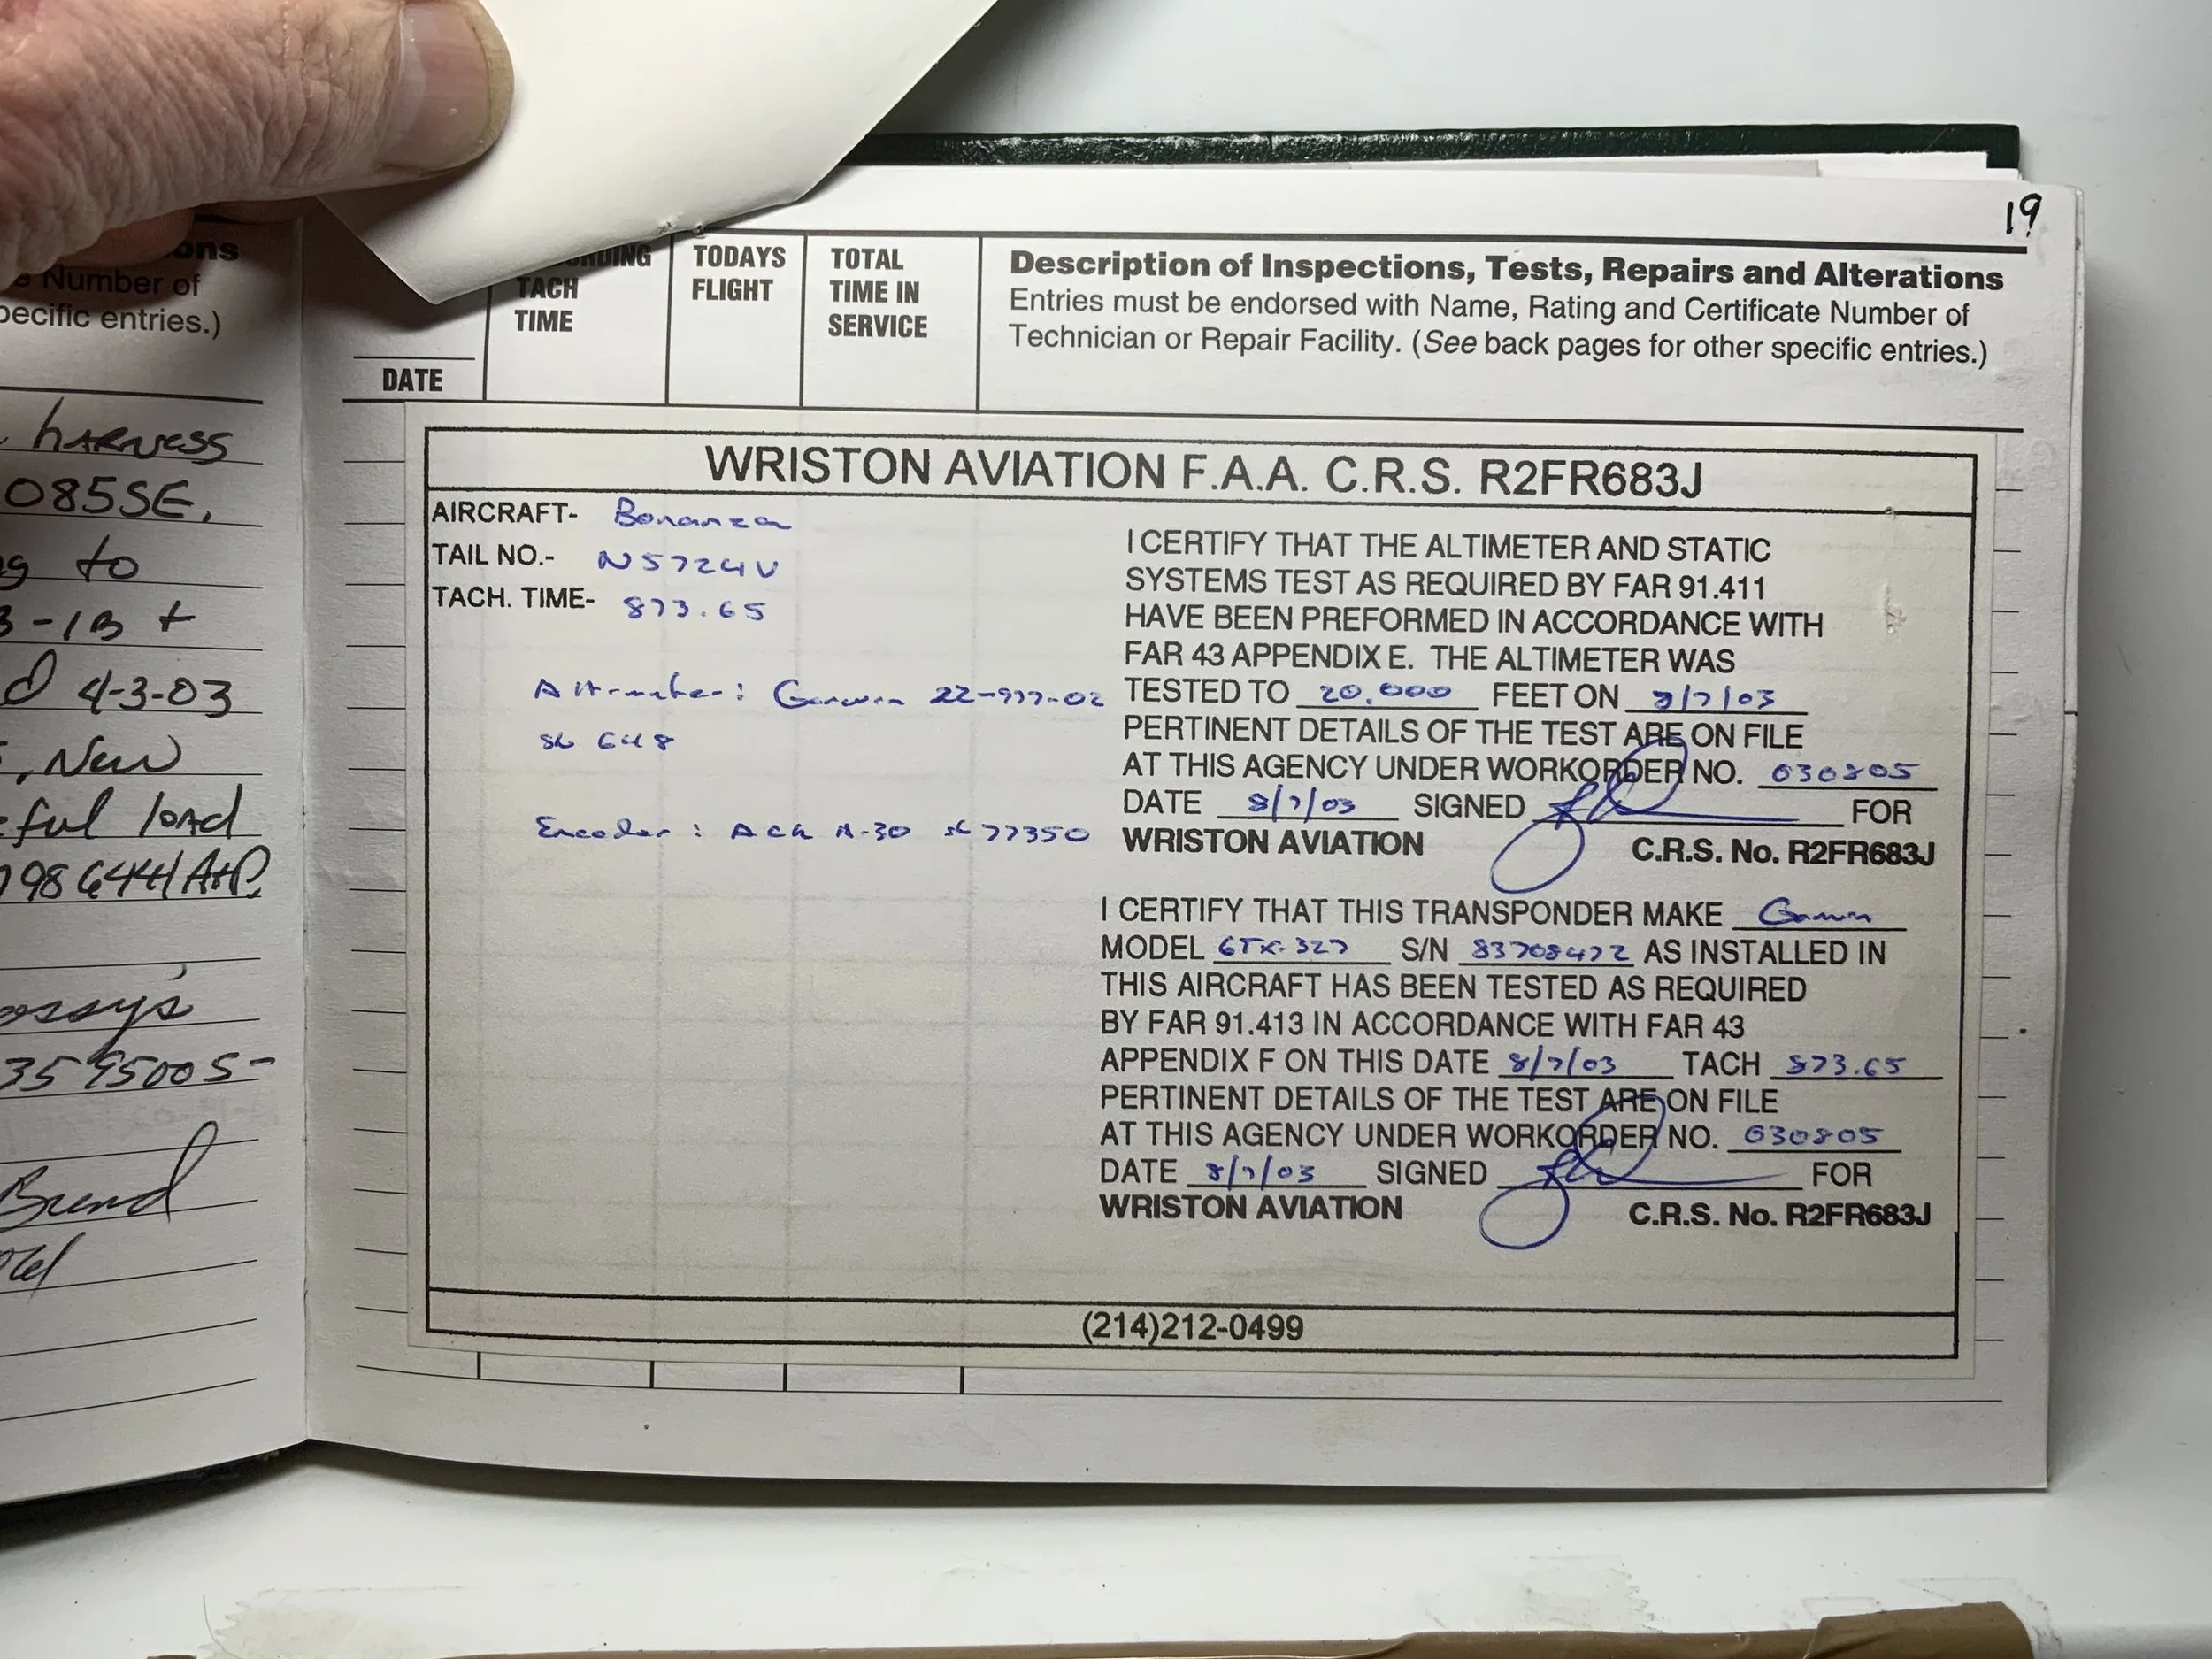 19
ons
Number of
pecific entries.)
TACH
TIME
TODAYS
FLIGHT
TOTAL
TIME IN
SERVICE
DATE
Description of Inspections, Tests, Repairs and Alterations
Entries must be endorsed with Name, Rating and Certificate Number of
Technician or Repair Facility. (See back pages for other specific entries.)
HARNESS
085SE,
g to
3-1B +
d 4-3-03
, New
ful load
98 6441 A&P
ossy's
35 95005-
Brend
WRISTON AVIATION F.A.A. C.R.S. R2FR683J
AIRCRAFT- Bonanza
TAIL NO.- N5724V
TACH. TIME- 873.65
Altimeter: Garwin 22-977-02
sn 648
Encoder: ACK A-30 sn 77350
I CERTIFY THAT THE ALTIMETER AND STATIC
SYSTEMS TEST AS REQUIRED BY FAR 91.411
HAVE BEEN PREFORMED IN ACCORDANCE WITH
FAR 43 APPENDIX E. THE ALTIMETER WAS
TESTED TO 20,000 FEET ON 8/7/03
PERTINENT DETAILS OF THE TEST ARE ON FILE
AT THIS AGENCY UNDER WORKORDER NO. 030805
DATE 8/7/03 SIGNED FOR
WRISTON AVIATION C.R.S. No. R2FR683J
I CERTIFY THAT THIS TRANSPONDER MAKE Garmin
MODEL GTX-327 S/N 83708472 AS INSTALLED IN
THIS AIRCRAFT HAS BEEN TESTED AS REQUIRED
BY FAR 91.413 IN ACCORDANCE WITH FAR 43
APPENDIX F ON THIS DATE 8/7/03 TACH 873.65
PERTINENT DETAILS OF THE TEST ARE ON FILE
AT THIS AGENCY UNDER WORKORDER NO. 030805
DATE 8/7/03 SIGNED FOR
WRISTON AVIATION C.R.S. No. R2FR683J
(214)212-0499